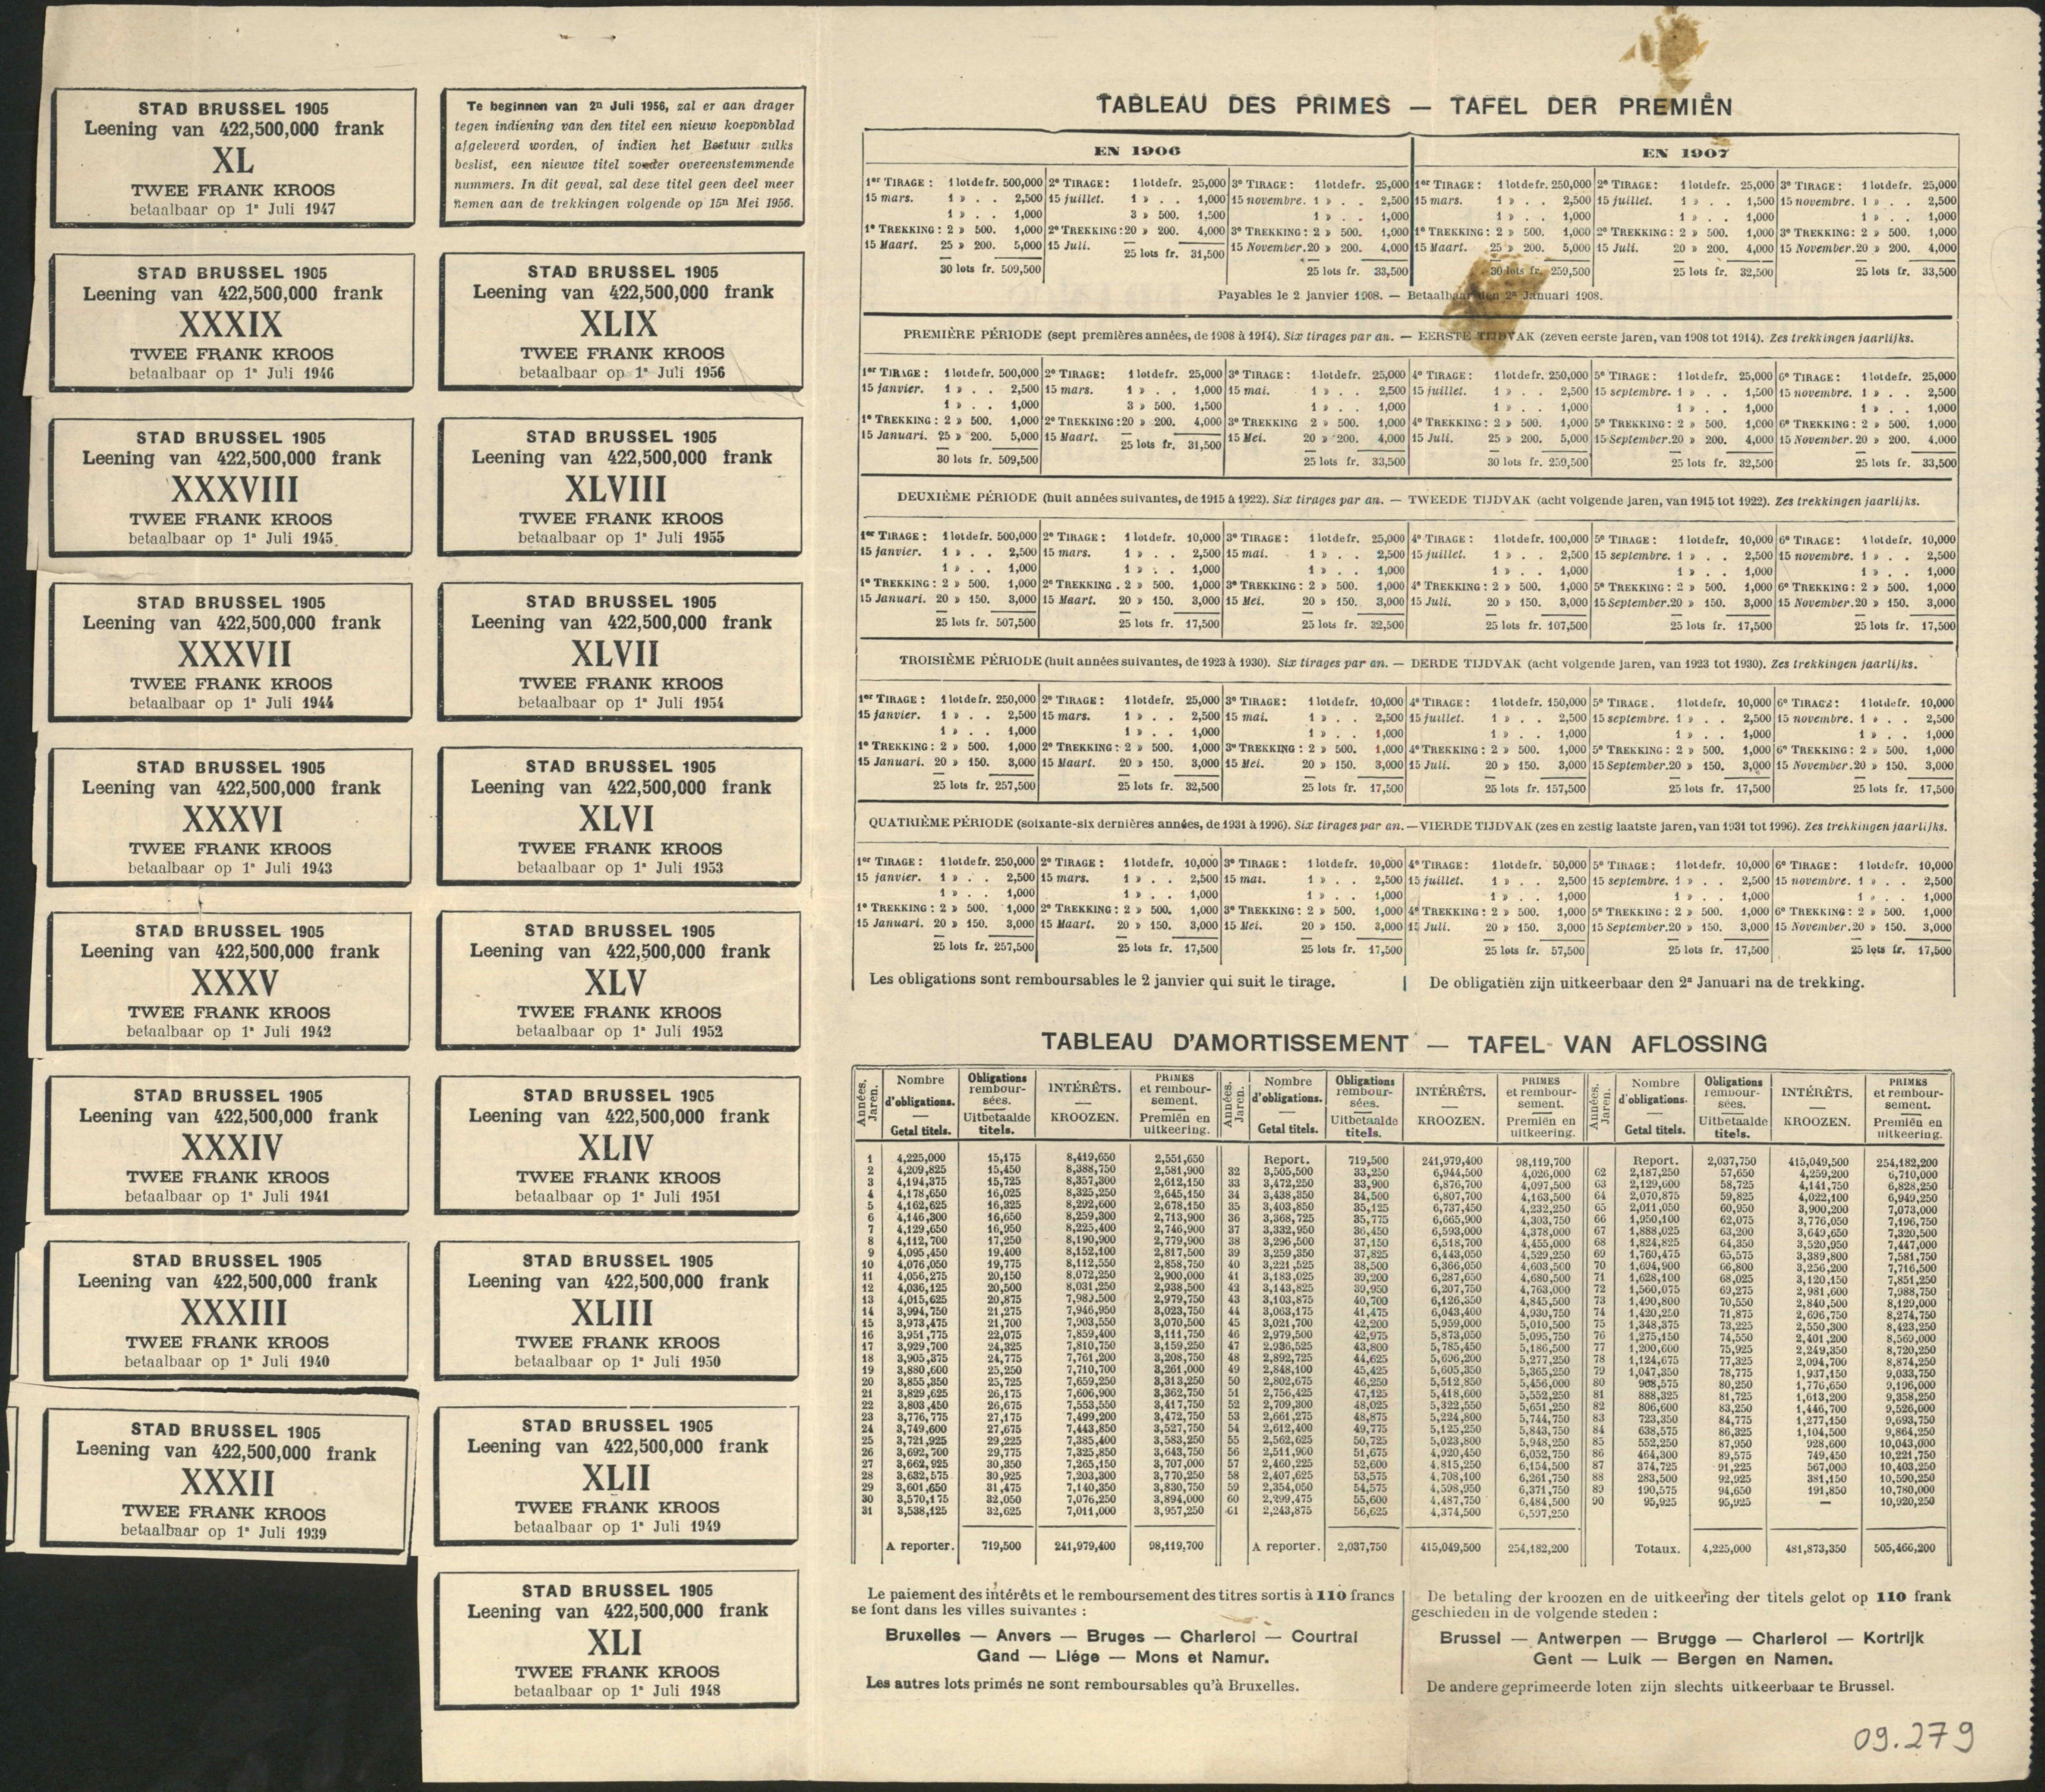 STAD BRUSSEL 1905
Leening van 422,500,000 frank
XL
TWEE FRANK KROOS
betaalbaar op 1n Juli 1947
STAD BRUSSEL 1905
Leening van 422,500,000 frank
XXXIX
TWEE FRANK KROOS
betaalbaar op 1n Juli 1946
STAD BRUSSEL 1905
Leening van 422,500,000 frank
XXXVIII
TWEE FRANK KROOS
betaalbaar op 1n Juli 1945
STAD BRUSSEL 1905
Leening van 422,500,000 frank
XXXVII
TWEE FRANK KROOS
betaalbaar op 1n Juli 1944
STAD BRUSSEL 1905
Leening van 422,500,000 frank
XXXVI
TWEE FRANK KROOS
betaalbaar op 1n Juli 1943
STAD BRUSSEL 1905
Leening van 422,500,000 frank
XXXV
TWEE FRANK KROOS
betaalbaar op 1n Juli 1942
STAD BRUSSEL 1905
Leening van 422,500,000 frank
XXXIV
TWEE FRANK KROOS
betaalbaar op 1n Juli 1941
STAD BRUSSEL 1905
Leening van 422,500,000 frank
XXXIII
TWEE FRANK KROOS
betaalbaar op 1n Juli 1940
STAD BRUSSEL 1905
Leening van 422,500,000 frank
XXXII
TWEE FRANK KROOS
betaalbaar op 1n Juli 1939
Te beginnen van 2n Juli 1956, zal er aan drager
tegen indiening van den titel een nieuw koeponblad
afgeleverd worden, of indien het Bestuur zulks
beslist, een nieuwe titel zonder overeenstemmende
nummers. In dit geval, zal deze titel geen deel meer
nemen aan de trekkingen volgende op 15n Mei 1956.
STAD BRUSSEL 1905
Leening van 422,500,000 frank
XLIX
TWEE FRANK KROOS
betaalbaar op 1n Juli 1956
STAD BRUSSEL 1905
Leening van 422,500,000 frank
XLVIII
TWEE FRANK KROOS
betaalbaar op 1n Juli 1955
STAD BRUSSEL 1905
Leening van 422,500,000 frank
XLVII
TWEE FRANK KROOS
betaalbaar op 1n Juli 1954
STAD BRUSSEL 1905
Leening van 422,500,000 frank
XLVI
TWEE FRANK KROOS
betaalbaar op 1n Juli 1953
STAD BRUSSEL 1905
Leening van 422,500,000 frank
XLV
TWEE FRANK KROOS
betaalbaar op 1n Juli 1952
STAD BRUSSEL 1905
Leening van 422,500,000 frank
XLIV
TWEE FRANK KROOS
betaalbaar op 1n Juli 1951
STAD BRUSSEL 1905
Leening van 422,500,000 frank
XLIII
TWEE FRANK KROOS
betaalbaar op 1n Juli 1950
STAD BRUSSEL 1905
Leening van 422,500,000 frank
XLII
TWEE FRANK KROOS
betaalbaar op 1n Juli 1949
STAD BRUSSEL 1905
Leening van 422,500,000 frank
XLI
TWEE FRANK KROOS
betaalbaar op 1n Juli 1948
TABLEAU DES PRIMES — TAFEL DER PREMIËN
EN 1906 EN 1907
1er TIRAGE : 1 lot de fr. 500,000 2e TIRAGE : 1 lot de fr. 25,000 3e TIRAGE : 1 lot de fr. 25,000 1er TIRAGE : 1 lot de fr. 250,000 2e TIRAGE : 1 lot de fr. 25,000 3e TIRAGE : 1 lot de fr. 25,000
15 mars. 1 » . . 2,500 15 juillet. 1 » . . 1,000 15 novembre. 1 » . . 2,500 15 mars. 1 » . . 2,500 15 juillet. 1 » . . 1,500 15 novembre. 1 » . . 2,500
1 » . . 1,000 3 » 500. 1,500 1 » . . 1,000 1 » . . 1,000 1 » . . 1,000 1 » . . 1,000
1e TREKKING : 2 » 500. 1,000 2e TREKKING : 20 » 200. 4,000 3e TREKKING : 2 » 500. 1,000 1e TREKKING : 2 » 500. 1,000 2e TREKKING : 2 » 500. 1,000 3e TREKKING : 2 » 500. 1,000
15 Maart. 25 » 200. 5,000 15 Juli. 25 lots fr. 31,500 15 November. 20 » 200. 4,000 15 Maart. 25 » 200. 5,000 15 Juli. 20 » 200. 4,000 15 November. 20 » 200. 4,000
30 lots fr. 509,500 25 lots fr. 33,500 30 lots fr. 259,500 25 lots fr. 32,500 25 lots fr. 33,500
Payables le 2 janvier 1908. — Betaalbaar den 2n Januari 1908.
PREMIÈRE PÉRIODE (sept premières années, de 1908 à 1914). Six tirages par an. — EERSTE TIJDVAK (zeven eerste jaren, van 1908 tot 1914). Zes trekkingen jaarlijks.
1er TIRAGE : 1 lot de fr. 500,000 2e TIRAGE : 1 lot de fr. 25,000 3e TIRAGE : 1 lot de fr. 25,000 4e TIRAGE : 1 lot de fr. 250,000 5e TIRAGE : 1 lot de fr. 25,000 6e TIRAGE : 1 lot de fr. 25,000
15 janvier. 1 » . . 2,500 15 mars. 1 » . . 1,000 15 mai. 1 » . . 2,500 15 juillet. 1 » . . 2,500 15 septembre. 1 » . . 1,500 15 novembre. 1 » . . 2,500
1 » . . 1,000 3 » 500. 1,500 1 » . . 1,000 1 » . . 1,000 1 » . . 1,000 1 » . . 1,000
1e TREKKING : 2 » 500. 1,000 2e TREKKING : 20 » 200. 4,000 3e TREKKING 2 » 500. 1,000 4e TREKKING : 2 » 500. 1,000 5e TREKKING : 2 » 500. 1,000 6e TREKKING : 2 » 500. 1,000
15 Januari. 25 » 200. 5,000 15 Maart. 25 lots fr. 31,500 15 Mei. 20 » 200. 4,000 15 Juli. 25 » 200. 5,000 15 September. 20 » 200. 4,000 15 November. 20 » 200. 4.000
30 lots fr. 509,500 25 lots fr. 33,500 30 lots fr. 259,500 25 lots fr. 32,500 25 lots fr. 33,500
DEUXIÈME PÉRIODE (huit années suivantes, de 1915 à 1922). Six tirages par an. — TWEEDE TIJDVAK (acht volgende jaren, van 1915 tot 1922). Zes trekkingen jaarlijks.
1er TIRAGE : 1 lot de fr. 500,000 2e TIRAGE : 1 lot de fr. 10,000 3e TIRAGE : 1 lot de fr. 25,000 4e TIRAGE : 1 lot de fr. 100,000 5e TIRAGE : 1 lot de fr. 10,000 6e TIRAGE : 1 lot de fr. 10,000
15 janvier. 1 » . . 2,500 15 mars. 1 » . . 2,500 15 mai. 1 » . . 2,500 15 juillet. 1 » . . 2,500 15 septembre. 1 » . . 2,500 15 novembre. 1 » . . 2,500
1 » . . 1,000 1 » . . 1,000 1 » . . 1,000 1 » . . 1,000 1 » . . 1,000 1 » . . 1,000
1e TREKKING : 2 » 500. 1,000 2e TREKKING . 2 » 500. 1,000 3e TREKKING : 2 » 500. 1,000 4e TREKKING : 2 » 500. 1,000 5e TREKKING : 2 » 500. 1,000 6e TREKKING : 2 » 500. 1,000
15 Januari. 20 » 150. 3,000 15 Maart. 20 » 150. 3,000 15 Mei. 20 » 150. 3,000 15 Juli. 20 » 150. 3,000 15 September. 20 » 150. 3,000 15 November. 20 » 150. 3,000
25 lots fr. 507,500 25 lots fr. 17,500 25 lots fr. 32,500 25 lots fr. 107,500 25 lots fr. 17,500 25 lots fr. 17,500
TROISIÈME PÉRIODE (huit années suivantes, de 1923 à 1930). Six tirages par an. — DERDE TIJDVAK (acht volgende jaren, van 1923 tot 1930). Zes trekkingen jaarlijks.
1er TIRAGE : 1 lot de fr. 250,000 2e TIRAGE : 1 lot de fr. 25,000 3e TIRAGE : 1 lot de fr. 10,000 4e TIRAGE : 1 lot de fr. 150,000 5e TIRAGE . 1 lot de fr. 10,000 6e TIRAGE : 1 lot de fr. 10,000
15 janvier. 1 » . . 2,500 15 mars. 1 » . . 2,500 15 mai. 1 » . . 2,500 15 juillet. 1 » . . 2,500 15 septembre. 1 » . . 2,500 15 novembre. 1 » . . 2,500
1 » . . 1,000 1 » . . 1,000 1 » . . 1,000 1 » . . 1,000 1 » . . 1,000 1 » . . 1,000
1e TREKKING : 2 » 500. 1,000 2e TREKKING : 2 » 500. 1,000 3e TREKKING : 2 » 500. 1,000 4e TREKKING : 2 » 500. 1,000 5e TREKKING : 2 » 500. 1,000 6e TREKKING : 2 » 500. 1,000
15 Januari. 20 » 150. 3,000 15 Maart. 20 » 150. 3,000 15 Mei. 20 » 150. 3,000 15 Juli. 20 » 150. 3,000 15 September. 20 » 150. 3,000 15 November. 20 » 150. 3,000
25 lots fr. 257,500 25 lots fr. 32,500 25 lots fr. 17,500 25 lots fr. 157,500 25 lots fr. 17,500 25 lots fr. 17,500
QUATRIÈME PÉRIODE (soixante-six dernières années, de 1931 à 1996). Six tirages par an. — VIERDE TIJDVAK (zes en zestig laatste jaren, van 1931 tot 1996). Zes trekkingen jaarlijks.
1er TIRAGE : 1 lot de fr. 250,000 2e TIRAGE : 1 lot de fr. 10,000 3e TIRAGE : 1 lot de fr. 10,000 4e TIRAGE : 1 lot de fr. 50,000 5e TIRAGE : 1 lot de fr. 10,000 6e TIRAGE : 1 lot de fr. 10,000
15 janvier. 1 » . . 2,500 15 mars. 1 » . . 2,500 15 mai. 1 » . . 2,500 15 juillet. 1 » . . 2,500 15 septembre. 1 » . . 2,500 15 novembre. 1 » . . 2,500
1 » . . 1,000 1 » . . 1,000 1 » . . 1,000 1 » . . 1,000 1 » . . 1,000 1 » . . 1,000
1e TREKKING : 2 » 500. 1,000 2e TREKKING : 2 » 500. 1,000 3e TREKKING : 2 » 500. 1,000 4e TREKKING : 2 » 500. 1,000 5e TREKKING : 2 » 500. 1,000 6e TREKKING : 2 » 500. 1,000
15 Januari. 20 » 150. 3,000 15 Maart. 20 » 150. 3,000 15 Mei. 20 » 150. 3,000 15 Juli. 20 » 150. 3,000 15 September. 20 » 150. 3,000 15 November. 20 » 150. 3,000
25 lots fr. 257,500 25 lots fr. 17,500 25 lots fr. 17,500 25 lots fr. 57,500 25 lots fr. 17,500 25 lots fr. 17,500
Les obligations sont remboursables le 2 janvier qui suit le tirage.
De obligatiën zijn uitkeerbaar den 2n Januari na de trekking.
TABLEAU D'AMORTISSEMENT — TAFEL VAN AFLOSSING
Années. Jaren. Nombre d'obligations. — Getal titels. Obligations remboursées. Uitbetaalde titels. INTÉRÊTS. — KROOZEN. PRIMES et remboursement. Premiën en uitkeering. Années. Jaren. Nombre d'obligations. — Getal titels. Obligations remboursées. Uitbetaalde titels. INTÉRÊTS. — KROOZEN. PRIMES et remboursement. Premiën en uitkeering. Années. Jaren. Nombre d'obligations. — Getal titels. Obligations remboursées. Uitbetaalde titels. INTÉRÊTS. — KROOZEN. PRIMES et remboursement. Premiën en uitkeering.
1 4,225,000 15,175 8,419,650 2,551,650 Report. 719,500 241,979,400 98,119,700 Report. 2,037,750 415,049,500 254,182,200
2 4,209,825 15,450 8,388,750 2,581,900 32 3,505,500 33,250 6,944,500 4,026,000 62 2,187,250 57,650 4,259,200 6,710,000
3 4,194,375 15,725 8,357,300 2,612,150 33 3,472,250 33,900 6,876,700 4,097,500 63 2,129,600 58,725 4,141,750 6,828,250
4 4,178,650 16,025 8,325,250 2,645,150 34 3,438,350 34,500 6,807,700 4,163,500 64 2,070,875 59,825 4,022,100 6,949,250
5 4,162,625 16,325 8,292,600 2,678,150 35 3,403,850 35,125 6,737,450 4,232,250 65 2,011,050 60,950 3,900,200 7,073,000
6 4,146,300 16,650 8,259,300 2,713,900 36 3,368,725 35,775 6,665,900 4,303,750 66 1,950,100 62,075 3,776,050 7,196,750
7 4,129,650 16,950 8,225,400 2,746,900 37 3,332,950 36,450 6,593,000 4,378,000 67 1,888,025 63,200 3,649,650 7,320,500
8 4,112,700 17,250 8,190,900 2,779,900 38 3,296,500 37,150 6,518,700 4,455,000 68 1,824,825 64,350 3,520,950 7,447,000
9 4,095,450 19,400 8,152,100 2,817,500 39 3,259,350 37,825 6,443,050 4,529,250 69 1,760,475 65,575 3,389,800 7,581,750
10 4,076,050 19,775 8,112,550 2,858,750 40 3,221,525 38,500 6,366,050 4,603,500 70 1,694,900 66,800 3,256,200 7,716,500
11 4,056,275 20,150 8,072,250 2,900,000 41 3,183,025 39,200 6,287,650 4,680,500 71 1,628,100 68,025 3,120,150 7,851,250
12 4,036,125 20,500 8,031,250 2,938,500 42 3,143,825 39,950 6,207,750 4,763,000 72 1,560,075 69,275 2,981,600 7,988,750
13 4,015,625 20,875 7,989,500 2,979,750 43 3,103,875 40,700 6,126,350 4,845,500 73 1,490,800 70,550 2,840,500 8,129,000
14 3,994,750 21,275 7,946,950 3,023,750 44 3,063,175 41,475 6,043,400 4,930,750 74 1,420,250 71,875 2,696,750 8,274,750
15 3,973,475 21,700 7,903,550 3,070,500 45 3,021,700 42,200 5,959,000 5,010,500 75 1,348,375 73,225 2,550,300 8,423,250
16 3,951,775 22,075 7,859,400 3,111,750 46 2,979,500 42,975 5,873,050 5,095,750 76 1,275,150 74,550 2,401,200 8,569,000
17 3,929,700 24,325 7,810,750 3,159,250 47 2,936,525 43,800 5,785,450 5,186,500 77 1,200,600 75,925 2,249,350 8,720,250
18 3,905,375 24,775 7,761,200 3,208,750 48 2,892,725 44,625 5,696,200 5,277,250 78 1,124,675 77,325 2,094,700 8,874,250
19 3,880,600 25,250 7,710,700 3,261,000 49 2,848,100 45,425 5,605,350 5,365,250 79 1,047,350 78,775 1,937,150 9,033,750
20 3,855,350 25,725 7,659,250 3,313,250 50 2,802,675 46,250 5,512,850 5,456,000 80 968,575 80,250 1,776,650 9,196,000
21 3,829,625 26,175 7,606,900 3,362,750 51 2,756,425 47,125 5,418,600 5,552,250 81 888,325 81,725 1,613,200 9,358,250
22 3,803,450 26,675 7,553,550 3,417,750 52 2,709,300 48,025 5,322,550 5,651,250 82 806,600 83,250 1,446,700 9,526,000
23 3,776,775 27,175 7,499,200 3,472,750 53 2,661,275 48,875 5,224,800 5,744,750 83 723,350 84,775 1,277,150 9,693,750
24 3,749,600 27,675 7,443,850 3,527,750 54 2,612,400 49,775 5,125,250 5,843,750 84 638,575 86,325 1,104,500 9,864,250
25 3,721,925 29,225 7,385,400 3,583,250 55 2,562,625 50,725 5,023,800 5,948,250 85 552,250 87,950 928,600 10,043,000
26 3,692,700 29,775 7,325,850 3,643,750 56 2,511,900 51,675 4,920,450 6,052,750 86 464,300 89,575 749,450 10,221,750
27 3,662,925 30,350 7,265,150 3,707,000 57 2,460,225 52,600 4,815,250 6,154,500 87 374,725 91,225 567,000 10,403,250
28 3,632,575 30,925 7,203,300 3,770,250 58 2,407,625 53,575 4,708,100 6,261,750 88 283,500 92,925 381,150 10,590,250
29 3,601,650 31,475 7,140,350 3,830,750 59 2,354,050 54,575 4,598,950 6,371,750 89 190,575 94,650 191,850 10,780,000
30 3,570,175 32,050 7,076,250 3,894,000 60 2,299,475 55,600 4,487,750 6,484,500 90 95,925 95,925 — 10,920,250
31 3,538,125 32,625 7,011,000 3,957,250 61 2,243,875 56,625 4,374,500 6,597,250
A reporter. 719,500 241,979,400 98,119,700 A reporter. 2,037,750 415,049,500 254,182,200 Totaux. 4,225,000 481,873,350 505,466,200
Le paiement des intérêts et le remboursement des titres sortis à 110 francs
se font dans les villes suivantes :
Bruxelles — Anvers — Bruges — Charleroi — Courtrai
Gand — Liége — Mons et Namur.
Les autres lots primés ne sont remboursables qu'à Bruxelles.
De betaling der kroozen en de uitkeering der titels gelot op 110 frank
geschieden in de volgende steden :
Brussel — Antwerpen — Brugge — Charleroi — Kortrijk
Gent — Luik — Bergen en Namen.
De andere geprimeerde loten zijn slechts uitkeerbaar te Brussel.
09.279